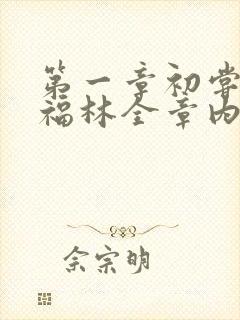 第一章初尝
福林全章内
余宗明